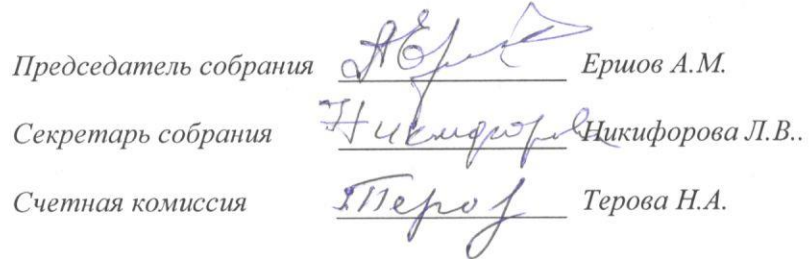 Председатель собрания Ершов А.М.
Секретарь собрания Никифорова Л.В..
Счетная комиссия Терова Н.А.